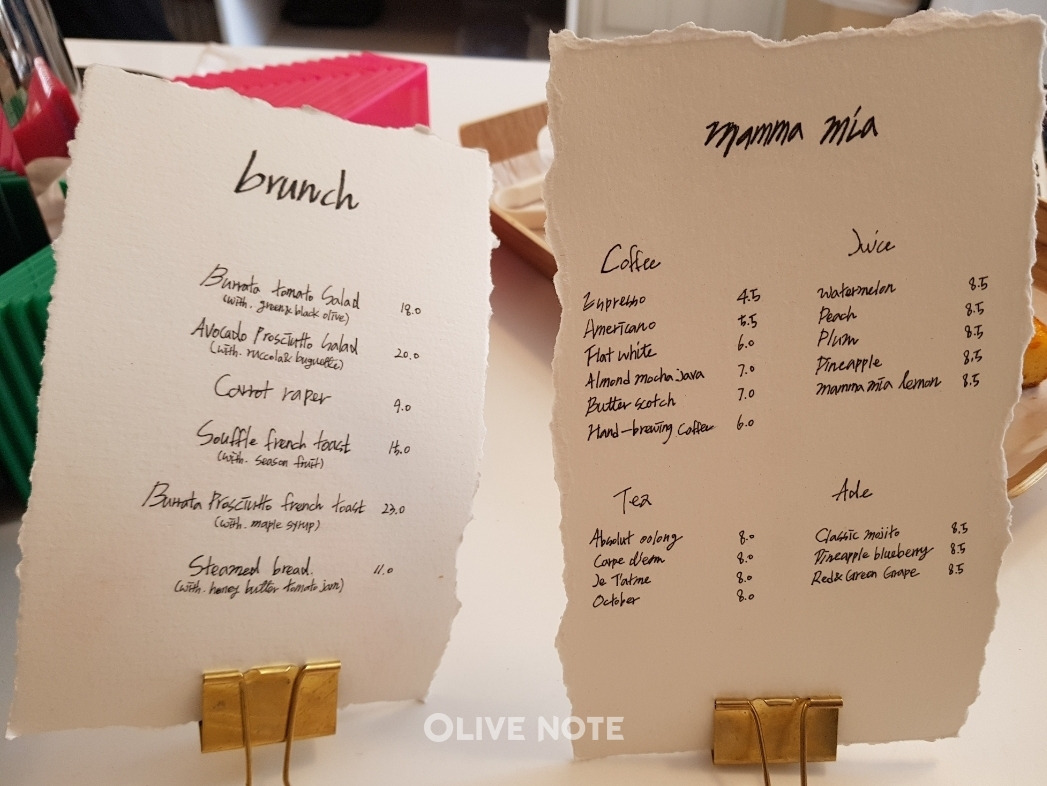 brunch
Burrata tomato Salad 18.0
(with. green & black olive)
Avocado Prosciutto Salad 20.0
(with. ruccola & buguette)
Carrot raper 9.0
Souffle french toast 15.0
(with. season fruit)
Burrata Prosciutto french toast 23.0
(with. maple syrup)
Steamed bread 11.0
(with. honey butter tomato jam)
mamma mia
Coffee
Espresso 4.5
Americano 5.5
Flat white 6.0
Almond mocha java 7.0
Butter scotch 7.0
Hand-brewing Coffee 6.0
Juice
Watermelon 8.5
Peach 8.5
Plum 8.5
Pineapple 8.5
mamma mia lemon 8.5
Tea
Absolut oolong 8.0
Carpe d'iem 8.0
Je T'atme 8.0
October 8.0
Ade
Classic mojito 8.5
Pineapple blueberry 8.5
Red & Green Grape 8.5
OLIVE NOTE